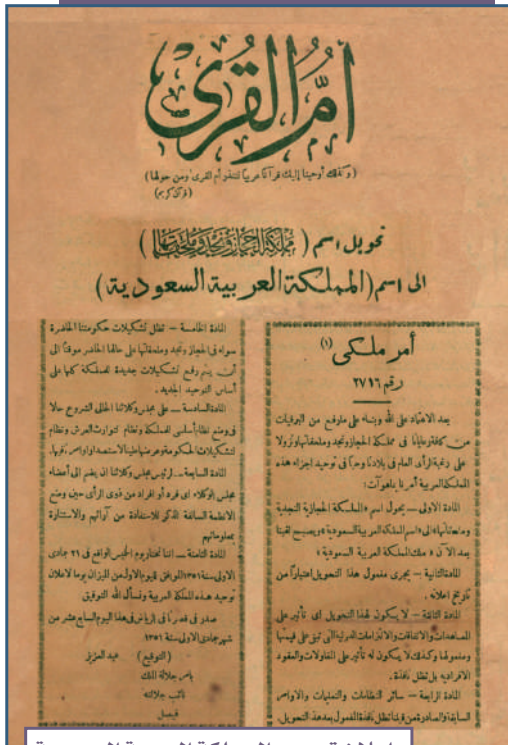 أم القرى
(وكذلك أوحينا إليك قرآناً عربياً لتنذر أم القرى ومن حولها)
(قرآن كريم)
تحويل اسم (مملكة الحجاز ونجد وملحقاتها)
الى اسم (المملكة العربية السعودية)
أمر ملكى (١)
رقم ٢٧١٦
بعد الاعتماد على الله وبناء على مارفع من البرقيات
من كافة رعايانا فى مملكة الحجاز ونجد وملحقاتها ونزولا
على رغبة الرأى العام فى بلادنا وحباً فى توحيد اجزاء هذه
المملكة العربية أمرنا بما هو آت:
المادة الاولى — يحول اسم «المملكة الحجازية النجدية
وملحقاتها» الى اسم «المملكة العربية السعودية» ويصبح لقبنا
بعد الآن «ملك المملكة العربية السعودية»
المادة الثانية — يجرى مفعول هذا التحويل اعتباراً من
تاريخ اعلانه.
المادة الثالثة — لا يكون لهذا التحويل اى تأثير على
المعاهدات والاتفاقات والالتزامات الدولية التى تبقى على قيمتها
ومفعولها وكذلك لا يكون له تأثير على المقاولات والعقود
الافرادية بل تظل نافذة.
المادة الرابعة — سائر النظامات والتعليمات والاوامر
السابقة والصادرة من قبلنا تظل نافذة المفعول بعد هذا التحويل.
المادة الخامسة — تظل تشكيلات حكومتنا الحاضرة
سواء فى الحجاز ونجد وملحقاتها على حالها الحاضر موقتاً الى
أن يتم وضع تشكيلات جديدة للمملكة كلها على
أساس التوحيد الجديد.
المادة السادسة — على مجلس وكلائنا الحالى الشروع حالا
فى وضع نظام أساسى للمملكة ونظام لتوارث العرش ونظام
لتشكيلات الحكومة وعرضها علينا لاستصدار اوامرنا فيها.
المادة السابعة — لرئيس مجلس وكلائنا ان يضم الى أعضاء
مجلس الوكلاء اى فرد أو افراد من ذوى الرأى حين وضع
الانظمة السالفة الذكر للاستفادة من آرائهم والاستنارة
بمعلوماتهم
المادة الثامنة — اننا نختار يوم الخميس الواقع فى ٢١ جمادى
الاولى سنة ١٣٥١ الموافق لليوم الاول من الميزان يوما لاعلان
توحيد هذه المملكة العربية ونسأل الله التوفيق
صدر فى قصرنا فى الرياض فى هذا اليوم السابع عشر من
شهر جمادى الاولى سنة ١٣٥١
(التوقيع) عبد العزيز
بامر جلالة الملك
نائب جلالته
فيصل